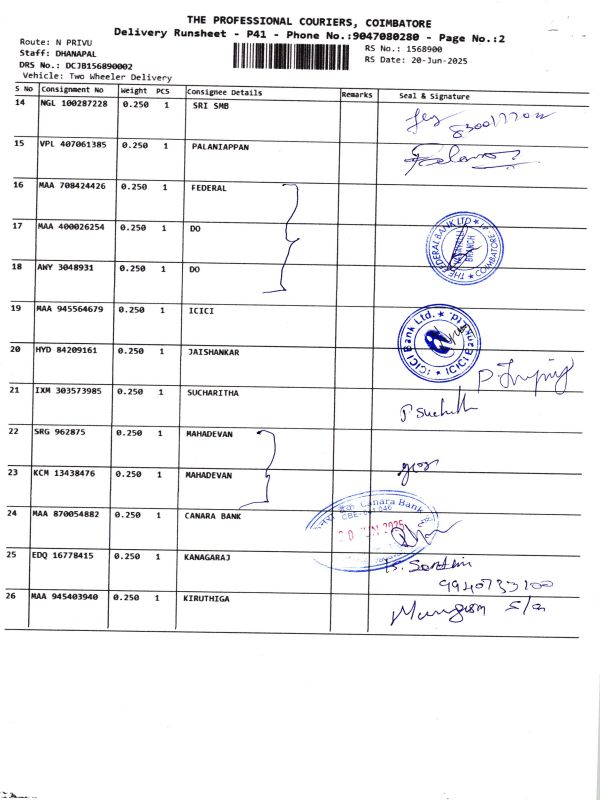 THE PROFESSIONAL COURIERS, COIMBATORE
Delivery Runsheet - P41 - Phone No.:9047080280 - Page No.:2
Route: N PRIVU
RS No.: 1568900
Staff: DHANAPAL
RS Date: 20-Jun-2025
DRS No.: DCJB156890002
Vehicle: Two Wheeler Delivery
S No Consignment No Weight PCS Consignee Details Remarks Seal & Signature
14 NGL 100287228 0.250 1 SRI SMB
15 VPL 407061385 0.250 1 PALANIAPPAN
16 MAA 708424426 0.250 1 FEDERAL
17 MAA 400026254 0.250 1 DO
THE FEDERAL BANK LTD COIMBATORE BRANCH
18 ANY 3048931 0.250 1 DO
19 MAA 945564679 0.250 1 ICICI
ICICI Bank Ltd. ICICI Bank Ltd.
20 HYD 84209161 0.250 1 JAISHANKAR
21 IXM 303573985 0.250 1 SUCHARITHA
22 SRG 962875 0.250 1 MAHADEVAN
23 KCM 13438476 0.250 1 MAHADEVAN
24 MAA 870054882 0.250 1 CANARA BANK
Canara Bank
20 JUN 2025
25 EDQ 16778415 0.250 1 KANAGARAJ
9940733100
26 MAA 945403940 0.250 1 KIRUTHIGA